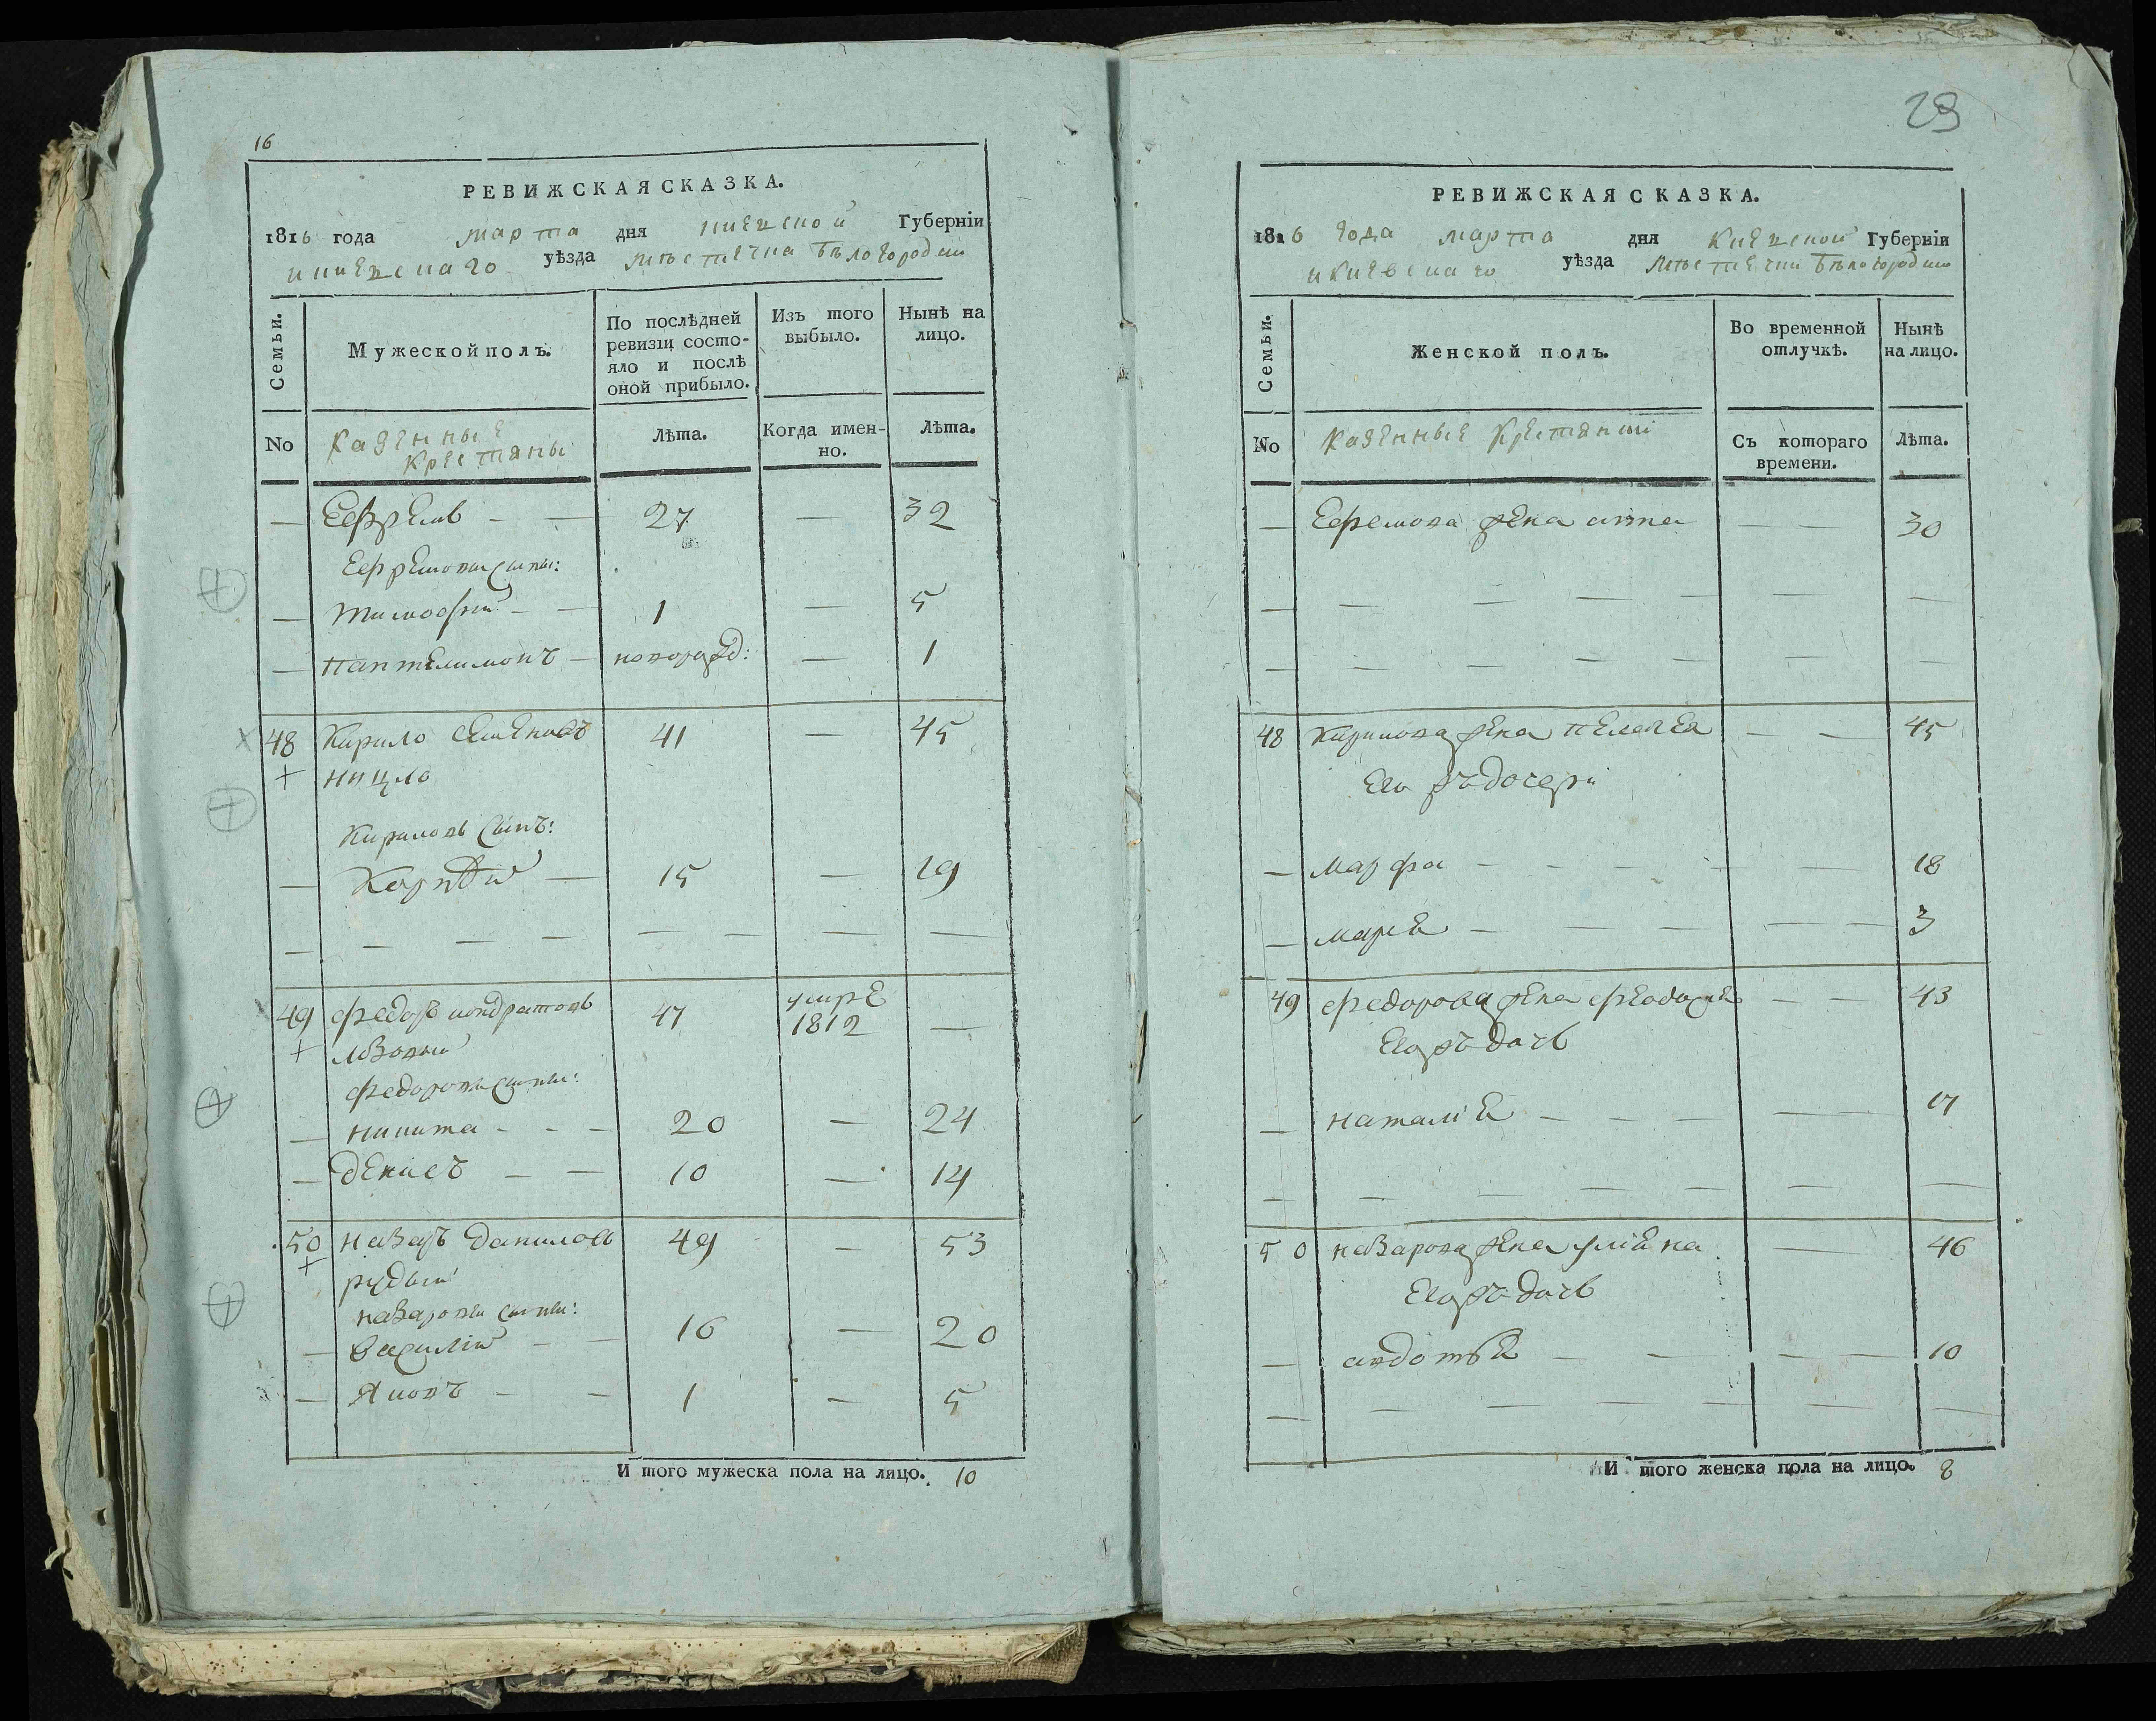 16
РЕВИЖСКАЯ СКАЗКА.
1816 года марта дня киевской Губерніи
и киевскаго уѣзда мѣстечка Бѣлогородки
Семьи.
Мужеской полъ.
По послѣдней ревизіи состояло и послѣ оной прибыло.
Изъ того выбыло.
Нынѣ на лицо.
No
казенные крестяны
Лѣта.
Когда именно.
Лѣта.
— Ефремъ — — 27 — 32
Ефремовы сыны:
— тимофей — — 1 — 5
— пантелимонъ — новорожд: — 1
48 Кирило Семеновъ 41 — 45
+
Кириловъ сынъ:
— Корнѣй — 15 — 19
— — — — — — — —
49 федоръ кондратовъ 47 умре 1812 —
+ лозовый
федоровы сыны:
— никита - - - 20 — 24
— денисъ — — 10 — 14
50 назаръ даниловъ 49 — 53
+ рудый
назаровы сыны:
— василій — — 16 — 20
— Яковъ — — 1 — 5
И того мужеска пола на лицо. 10
29
РЕВИЖСКАЯ СКАЗКА.
1816 года марта дня киевской Губерніи
и киевскаго уѣзда мѣстечки Бѣлогородки
Семьи.
Женской полъ.
Во временной отлучкѣ.
Нынѣ на лицо.
No
казенные крестянки
Съ котораго времени.
Лѣта.
— Ефремова жена анна — — 30
— — — — — — — —
— — — — — — — —
48 Кирилова жена пелагея — — 45
Его жъ дочери
— марфа — — — — — — 18
— марія — — — — — 3
49 федорова жена феодосія — — 43
Его жъ дочь
— наталія — — — — — 17
— — — — — — — —
50 назарова жена уліяна — 46
Его жъ дочь
— авдотья — — — — — 10
— — — — — — — —
И того женска пола на лицо. 8